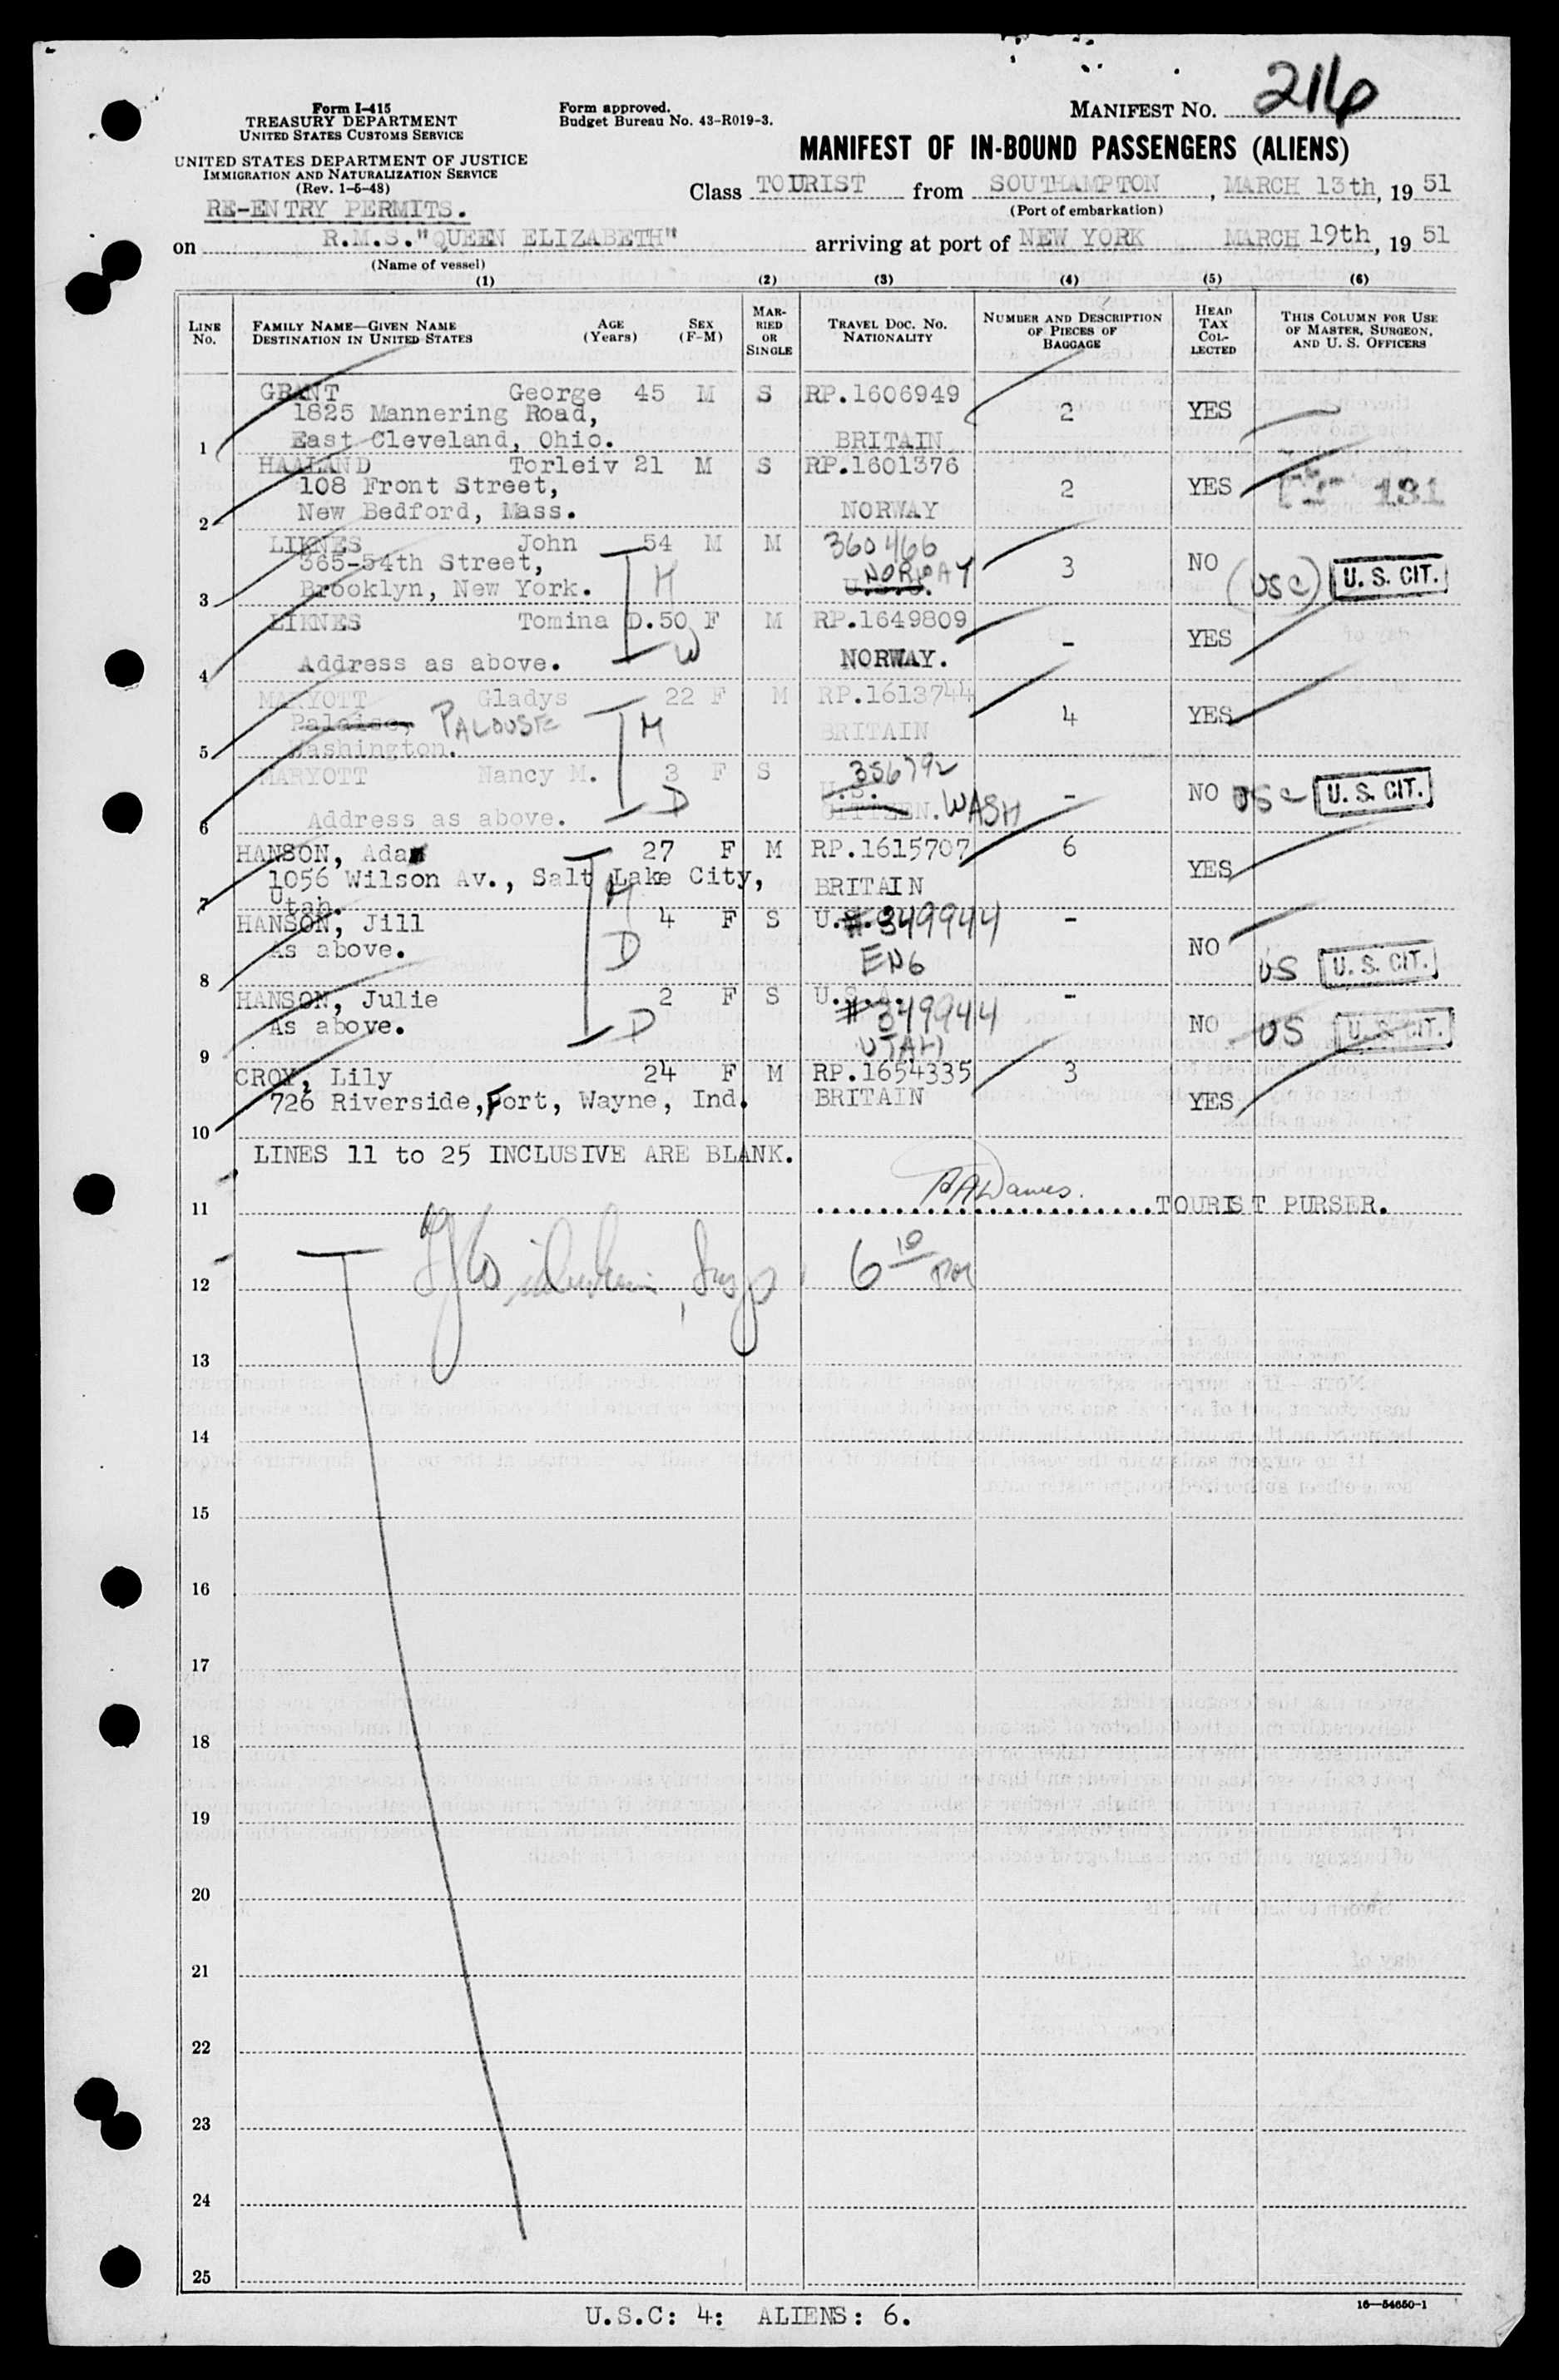 Form I-415
TREASURY DEPARTMENT
UNITED STATES CUSTOMS SERVICE
UNITED STATES DEPARTMENT OF JUSTICE
IMMIGRATION AND NATURALIZATION SERVICE
(Rev. 1-5-48)
Form approved.
Budget Bureau No. 43-R019-3.
MANIFEST NO. 216
MANIFEST OF IN-BOUND PASSENGERS (ALIENS)
Class TOURIST from SOUTHAMPTON, MARCH 13th, 1951
(Port of embarkation)
RE-ENTRY PERMITS.
on R.M.S."QUEEN ELIZABETH" arriving at port of NEW YORK MARCH 19th, 1951
(Name of vessel)
(1) (2) (3) (4) (5) (6)
LINE No.
FAMILY NAME—GIVEN NAME
DESTINATION IN UNITED STATES
AGE (Years)
SEX (F-M)
MARRIED OR SINGLE
TRAVEL DOC. NO.
NATIONALITY
NUMBER AND DESCRIPTION OF PIECES OF BAGGAGE
HEAD TAX COLLECTED
THIS COLUMN FOR USE OF MASTER, SURGEON, AND U. S. OFFICERS
GRANT George 45 M S RP.1606949
1825 Mannering Road, 2 YES
1 East Cleveland, Ohio. BRITAIN
HAALAND Torleiv 21 M S RP.1601376
108 Front Street, 2 YES 131
2 New Bedford, Mass. NORWAY
LIKNES John 54 M M 360466
365-54th Street, H NORWAY 3 NO (USC) U. S. CIT.
3 Brooklyn, New York. U.S.A.
LIKNES Tomina D. 50 F M RP.1649809
- YES
4 Address as above. W NORWAY.
MARYOTT Gladys 22 F M RP.1613744
Palaise, PALOUSE H BRITAIN 4 YES
5 Washington.
MARYOTT Nancy M. 3 F S 356792
U.S. CITIZEN. WASH - NO USC U. S. CIT.
6 Address as above. D
HANSON, Ada 27 F M RP.1615707 6
1056 Wilson Av., Salt Lake City, BRITAIN YES
7 Utah. H
HANSON, Jill 4 F S U.S. #349944 -
As above. D ENG NO
8 US U. S. CIT.
HANSON, Julie 2 F S U.S.A. -
As above. D #349944 NO US U. S. CIT.
9 UTAH
CROY, Lily 24 F M RP.1654335 3
726 Riverside, Fort, Wayne, Ind. BRITAIN YES
10
LINES 11 to 25 INCLUSIVE ARE BLANK.
11 TOURIST PURSER.
12 Insp 6 10
13
14
15
16
17
18
19
20
21
22
23
24
25
16—54650-1
U.S.C: 4: ALIENS: 6.